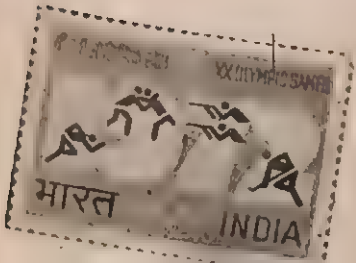 XX OLYMPIC GAMES
भारत
INDIA